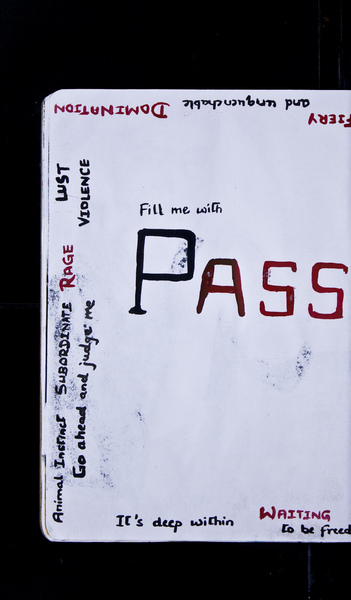 FIERY
and unquenchable
DOMINATION
LUST
VIOLENCE
RAGE
SUBORDINATE
Go ahead and judge me
Animal Instinct
Fill me with
PASS
It's deep within
WAITING
to be freed